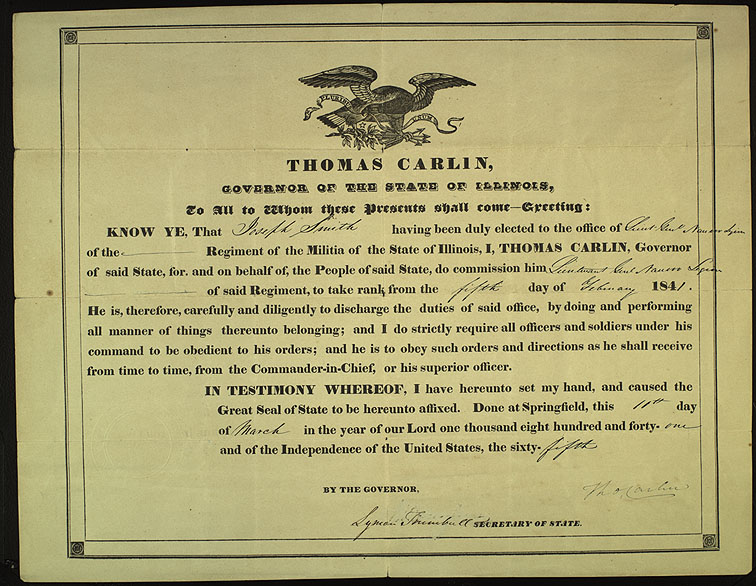 E PLURIBUS UNUM
THOMAS CARLIN,
GOVERNOR OF THE STATE OF ILLINOIS,
To All to Whom these Presents shall come—Greeting:
KNOW YE, That Joseph Smith having been duly elected to the office of Lieut. Genl. Nauvoo Legion
of the Regiment of the Militia of the State of Illinois, I, THOMAS CARLIN, Governor
of said State, for. and on behalf of, the People of said State, do commission him Lieutenant Genl Nauvoo Legion
of said Regiment, to take rank from the fifth day of February 1841.
He is, therefore, carefully and diligently to discharge the duties of said office, by doing and performing
all manner of things thereunto belonging; and I do strictly require all officers and soldiers under his
command to be obedient to his orders; and he is to obey such orders and directions as he shall receive
from time to time, from the Commander-in-Chief, or his superior officer.
IN TESTIMONY WHEREOF, I have hereunto set my hand, and caused the
Great Seal of State to be hereunto affixed. Done at Springfield, this 11th day
of March in the year of our Lord one thousand eight hundred and forty-one
and of the Independence of the United States, the sixty-fifth
BY THE GOVERNOR,
Tho Carlin
Lyman Trumbull SECRETARY OF STATE.